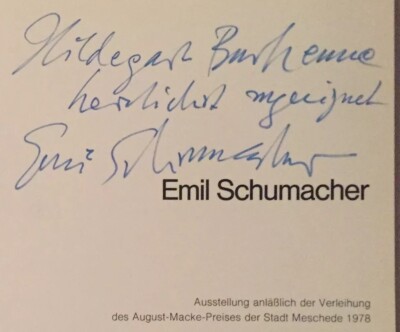 Hildegart Burhenne
herzlichst zugeeignet
Emil Schumacher
Emil Schumacher
Ausstellung anläßlich der Verleihung
des August-Macke-Preises der Stadt Meschede 1978